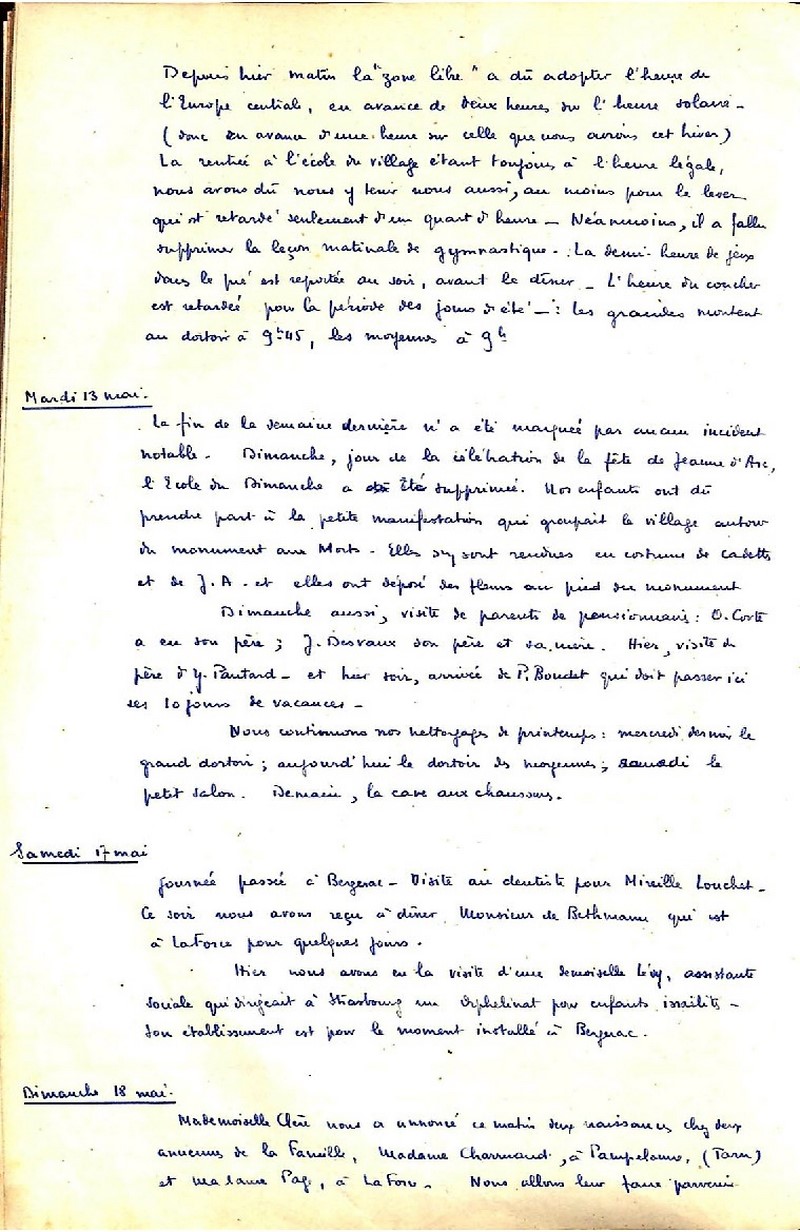 Depuis hier matin la "zone libre" a dû adopter l'heure de
l'Europe centrale, en avance de deux heures sur l'heure solaire -
(donc en avance d'une heure sur celle que nous avions cet hiver)
La rentrée à l'école du village étant toujours à l'heure légale,
nous avons dû nous y tenir nous aussi, au moins pour le lever
qui est retardé seulement d'un quart d'heure - Néanmoins, il a fallu
supprimer la leçon matinale de gymnastique - La demi-heure de jeux
dans le pré est reportée au soir, avant le dîner - L'heure du coucher
est retardée pour la période des jours d'été - : les grandes montent
au dortoir à 9h45, les moyennes à 9h
Mardi 13 mai.
La fin de la semaine dernière n'a été marquée par aucun incident
notable - Dimanche, jour de la célébration de la fête de Jeanne d'Arc,
l'Ecole du Dimanche a été supprimée. Nos enfants ont dû
prendre part à la petite manifestation qui groupait le village autour
du monument aux Morts - Elles s'y sont rendues en costume de cadettes
et de J.A. et elles ont déposé des fleurs au pied du monument
Dimanche aussi, visite de parents de pensionnaires : O. Corte
a eu son père ; J. Desvaux son père et sa mère. Hier, visite du
père d'Y. Pautard - et hier soir, arrivée de P. Boudet qui doit passer ici
ses 10 jours de vacances -
Nous continuons nos nettoyages de printemps : mercredi dernier le
grand dortoir ; aujourd'hui le dortoir des moyennes ; samedi le
petit salon. Demain, la cave aux chaussures.
Samedi 17 mai
Journée passée à Bergerac - Visite au dentiste pour Mireille Louchet -
Ce soir nous avons reçu à dîner Monsieur de Bethmann qui est
à LaForce pour quelques jours.
Hier nous avons eu la visite d'une demoiselle Lévy, assistante
sociale qui dirigeait à Strasbourg un orphelinat pour enfants israélites -
Son établissement est pour le moment installé à Bergerac.
Dimanche 18 mai.
Mademoiselle nous a annoncé ce matin deux naissances chez deux
anciennes de la Famille, Madame Charmaud, à Pampelonne, (Tarn)
et Madame Page, à LaForce. Nous allons leur faire parvenir